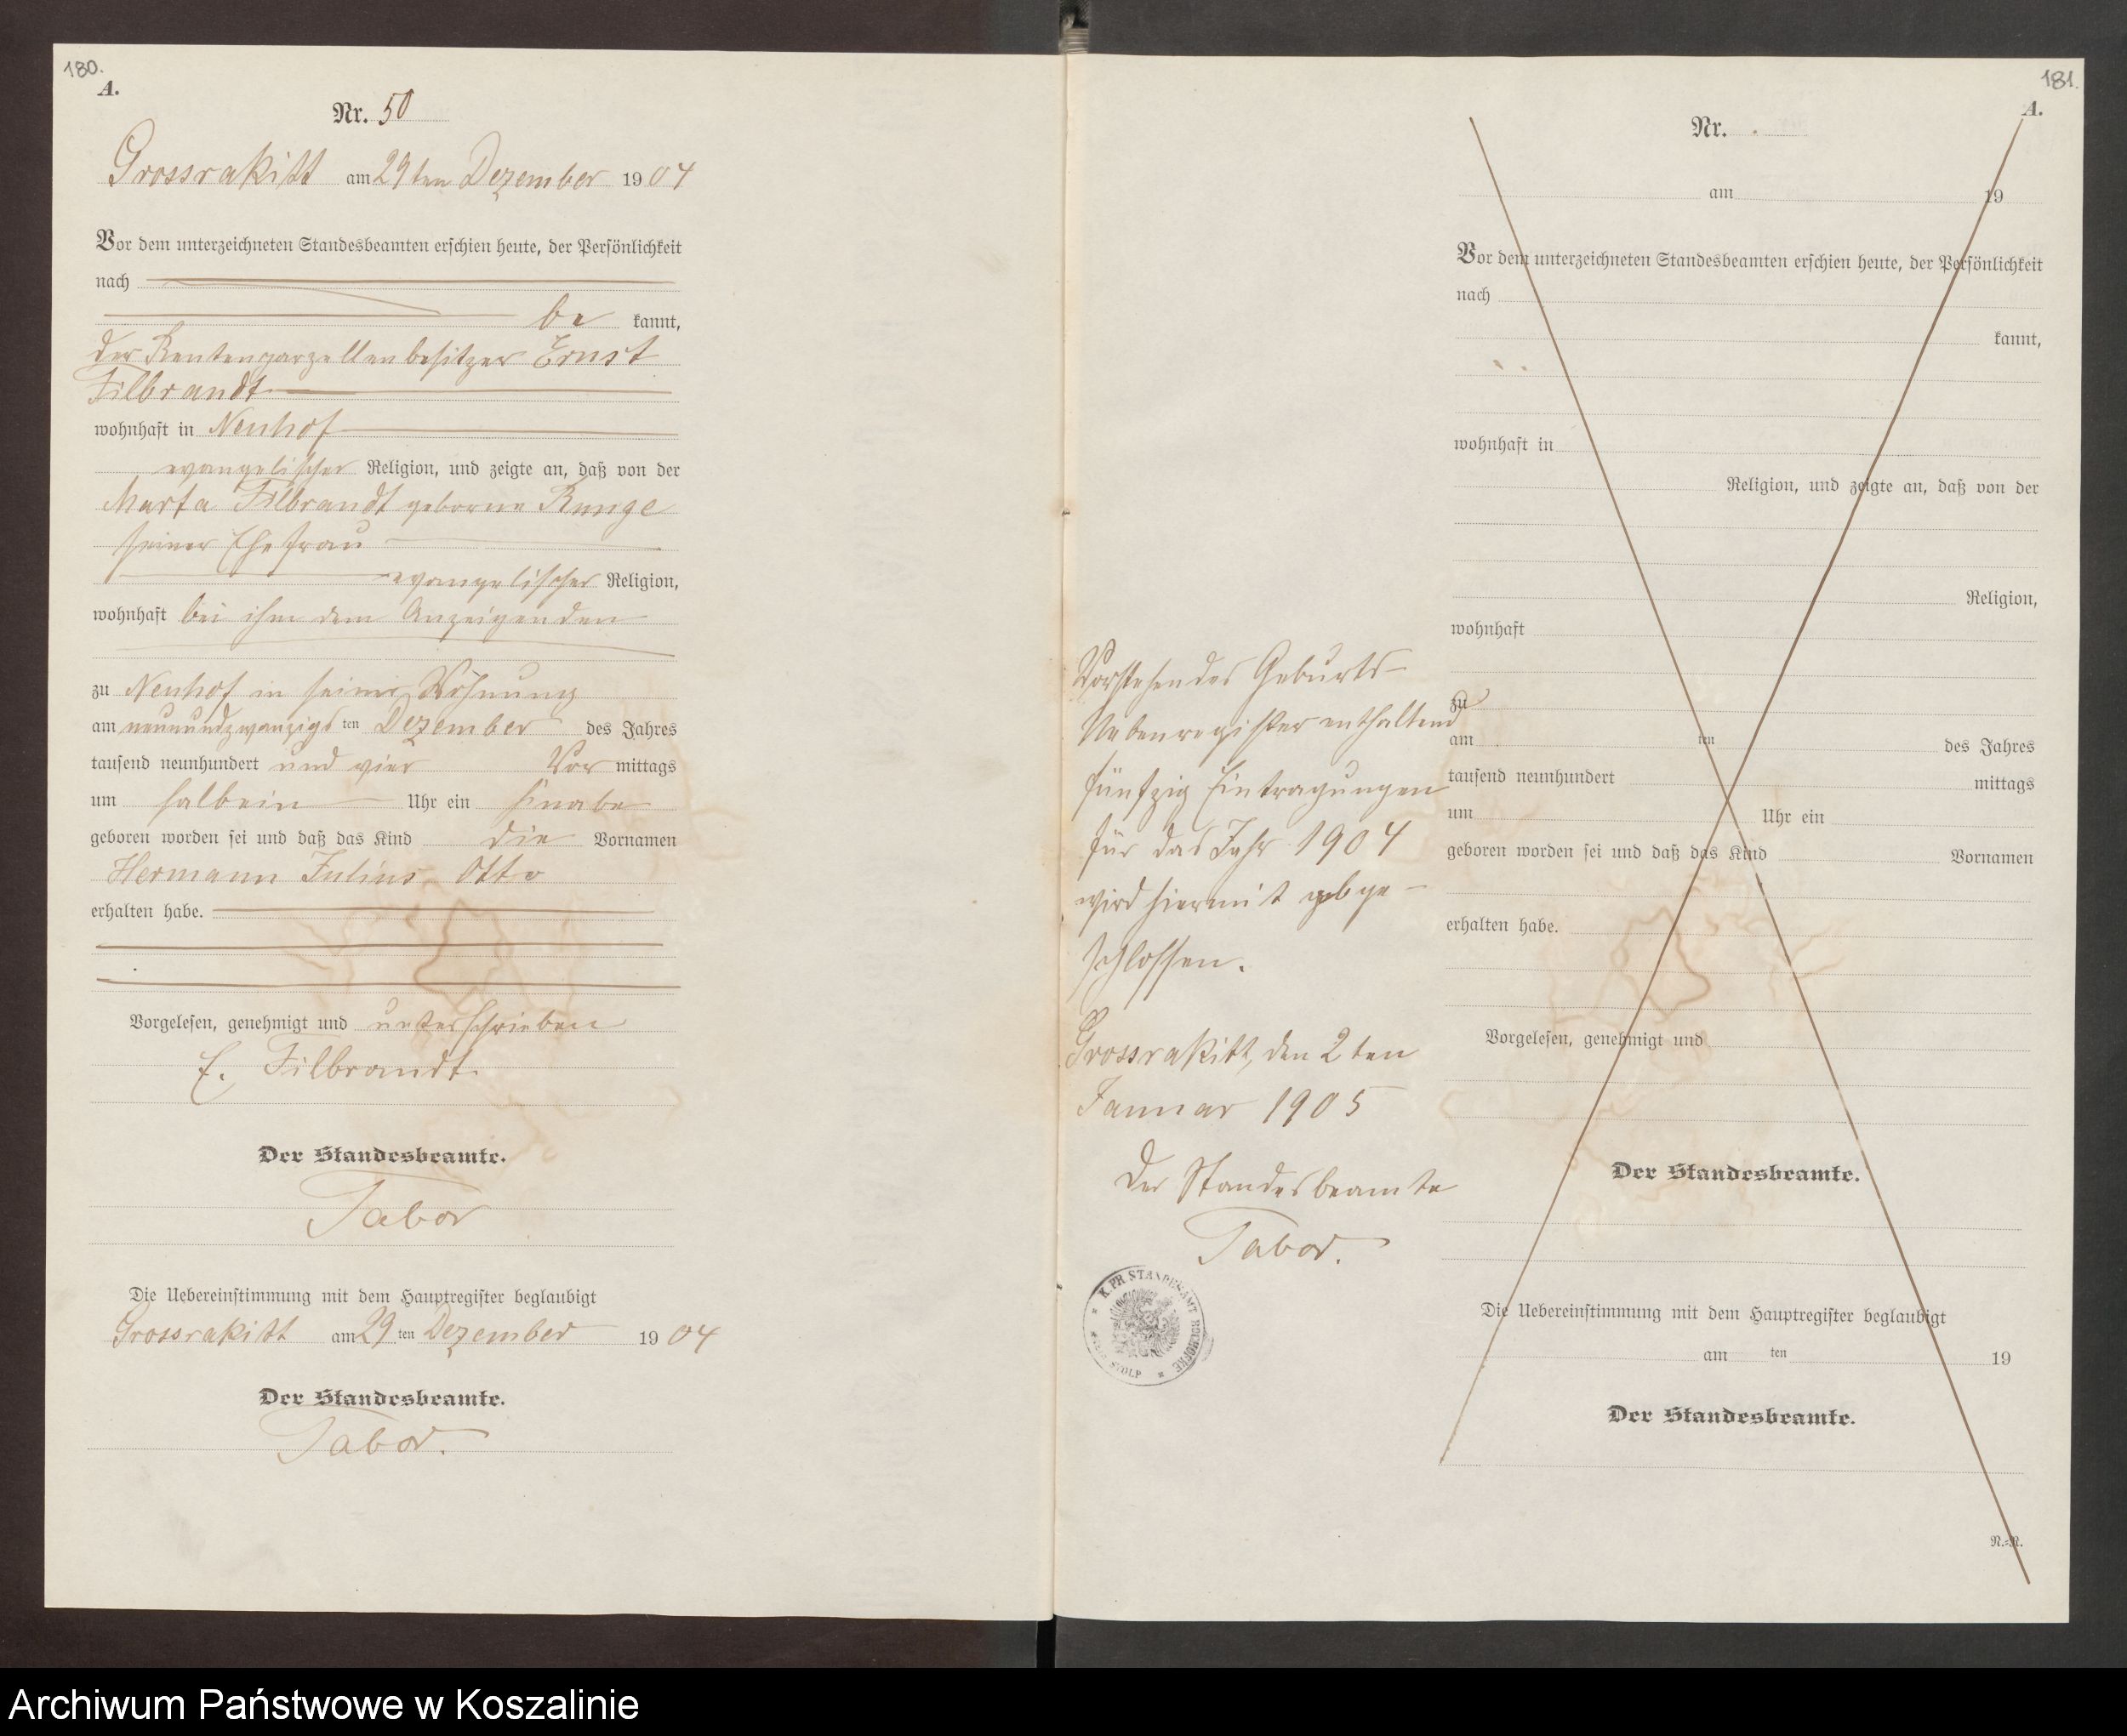 180.
A.
Nr. 50
Grossrakitt am 29 ten Dezember 1904
Vor dem unterzeichneten Standesbeamten erschien heute, der Persönlichkeit
nach
be kannt,
der Rentenparzellenbesitzer Ernst
Filbrandt
wohnhaft in Neuhof
evangelischer Religion, und zeigte an, daß von der
Marta Filbrandt geborne Runge
seiner Ehefrau
evangelischer Religion,
wohnhaft bei ihm dem Anzeigenden
zu Neuhof in seiner Wohnung
am neunundzwanzigs ten Dezember des Jahres
tausend neunhundert und vier Vor mittags
um halbein Uhr ein Knabe
geboren worden sei und daß das Kind die Vornamen
Hermann Julius Otto
erhalten habe.
Vorgelesen, genehmigt und unterschrieben
E. Filbrandt.
Der Standesbeamte.
Tabor
Die Uebereinstimmung mit dem Hauptregister beglaubigt
Grossrakitt am 29 ten Dezember 1904
Der Standesbeamte.
Tabor.
Vorstehendes Geburts-
Nebenregister enthaltend
fünfzig Eintragungen
für das Jahr 1904
wird hiermit abge-
schlossen.
Grossrakitt, den 2 ten
Januar 1905
Der Standesbeamte
Tabor.
K. PR. STANDESAMT
STOLP
181.
A.
Nr.
am 19
Vor dem unterzeichneten Standesbeamten erschien heute, der Persönlichkeit
nach
kannt,
wohnhaft in
Religion, und zeigte an, daß von der
Religion,
wohnhaft
zu
am ten des Jahres
tausend neunhundert mittags
um Uhr ein
geboren worden sei und daß das Kind Vornamen
erhalten habe.
Vorgelesen, genehmigt und
Der Standesbeamte.
Die Uebereinstimmung mit dem Hauptregister beglaubigt
am ten 19
Der Standesbeamte.
N.=R.
Archiwum Państwowe w Koszalinie